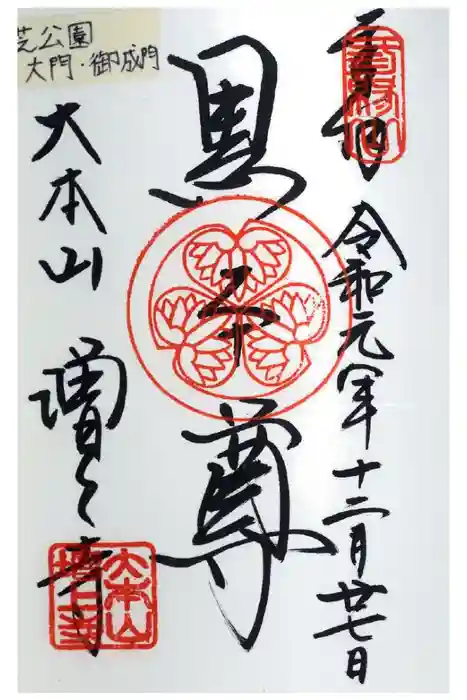 芝公園
大門・御成門
令和元年十二月廿七日
黒本尊
大本山 増上寺
大本山
増上寺